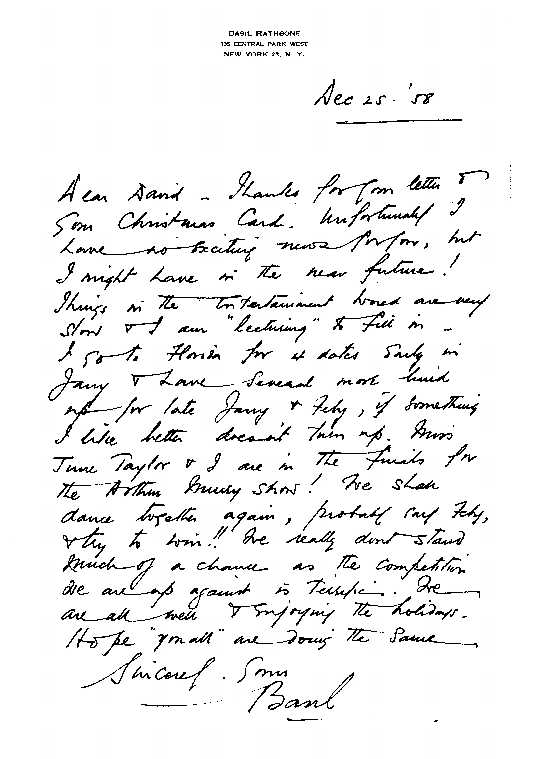 BASIL RATHBONE
135 CENTRAL PARK WEST
NEW YORK 23, N. Y.
Dec 25. '58
Dear David - Thanks for your letter &
your Christmas Card. Unfortunately I
have no exciting news for you, but
I might have in the near future!
Things in the entertainment world are very
slow & I am "lecturing" to fill in -
I go to Florida for 4 dates early in
Jany & have several more lined
up for late Jany & Feby, if something
I like better doesn't turn up. Miss
June Taylor & I are in the finals for
the Arthur Murray show! We shall
dance together again, probably early Feby,
& try to win!! We really dont stand
much of a chance as the competition
we are up against is terrific. We
are all well & enjoying the holidays.
Hope "you all" are doing the same
Sincerely. Yours
Basil